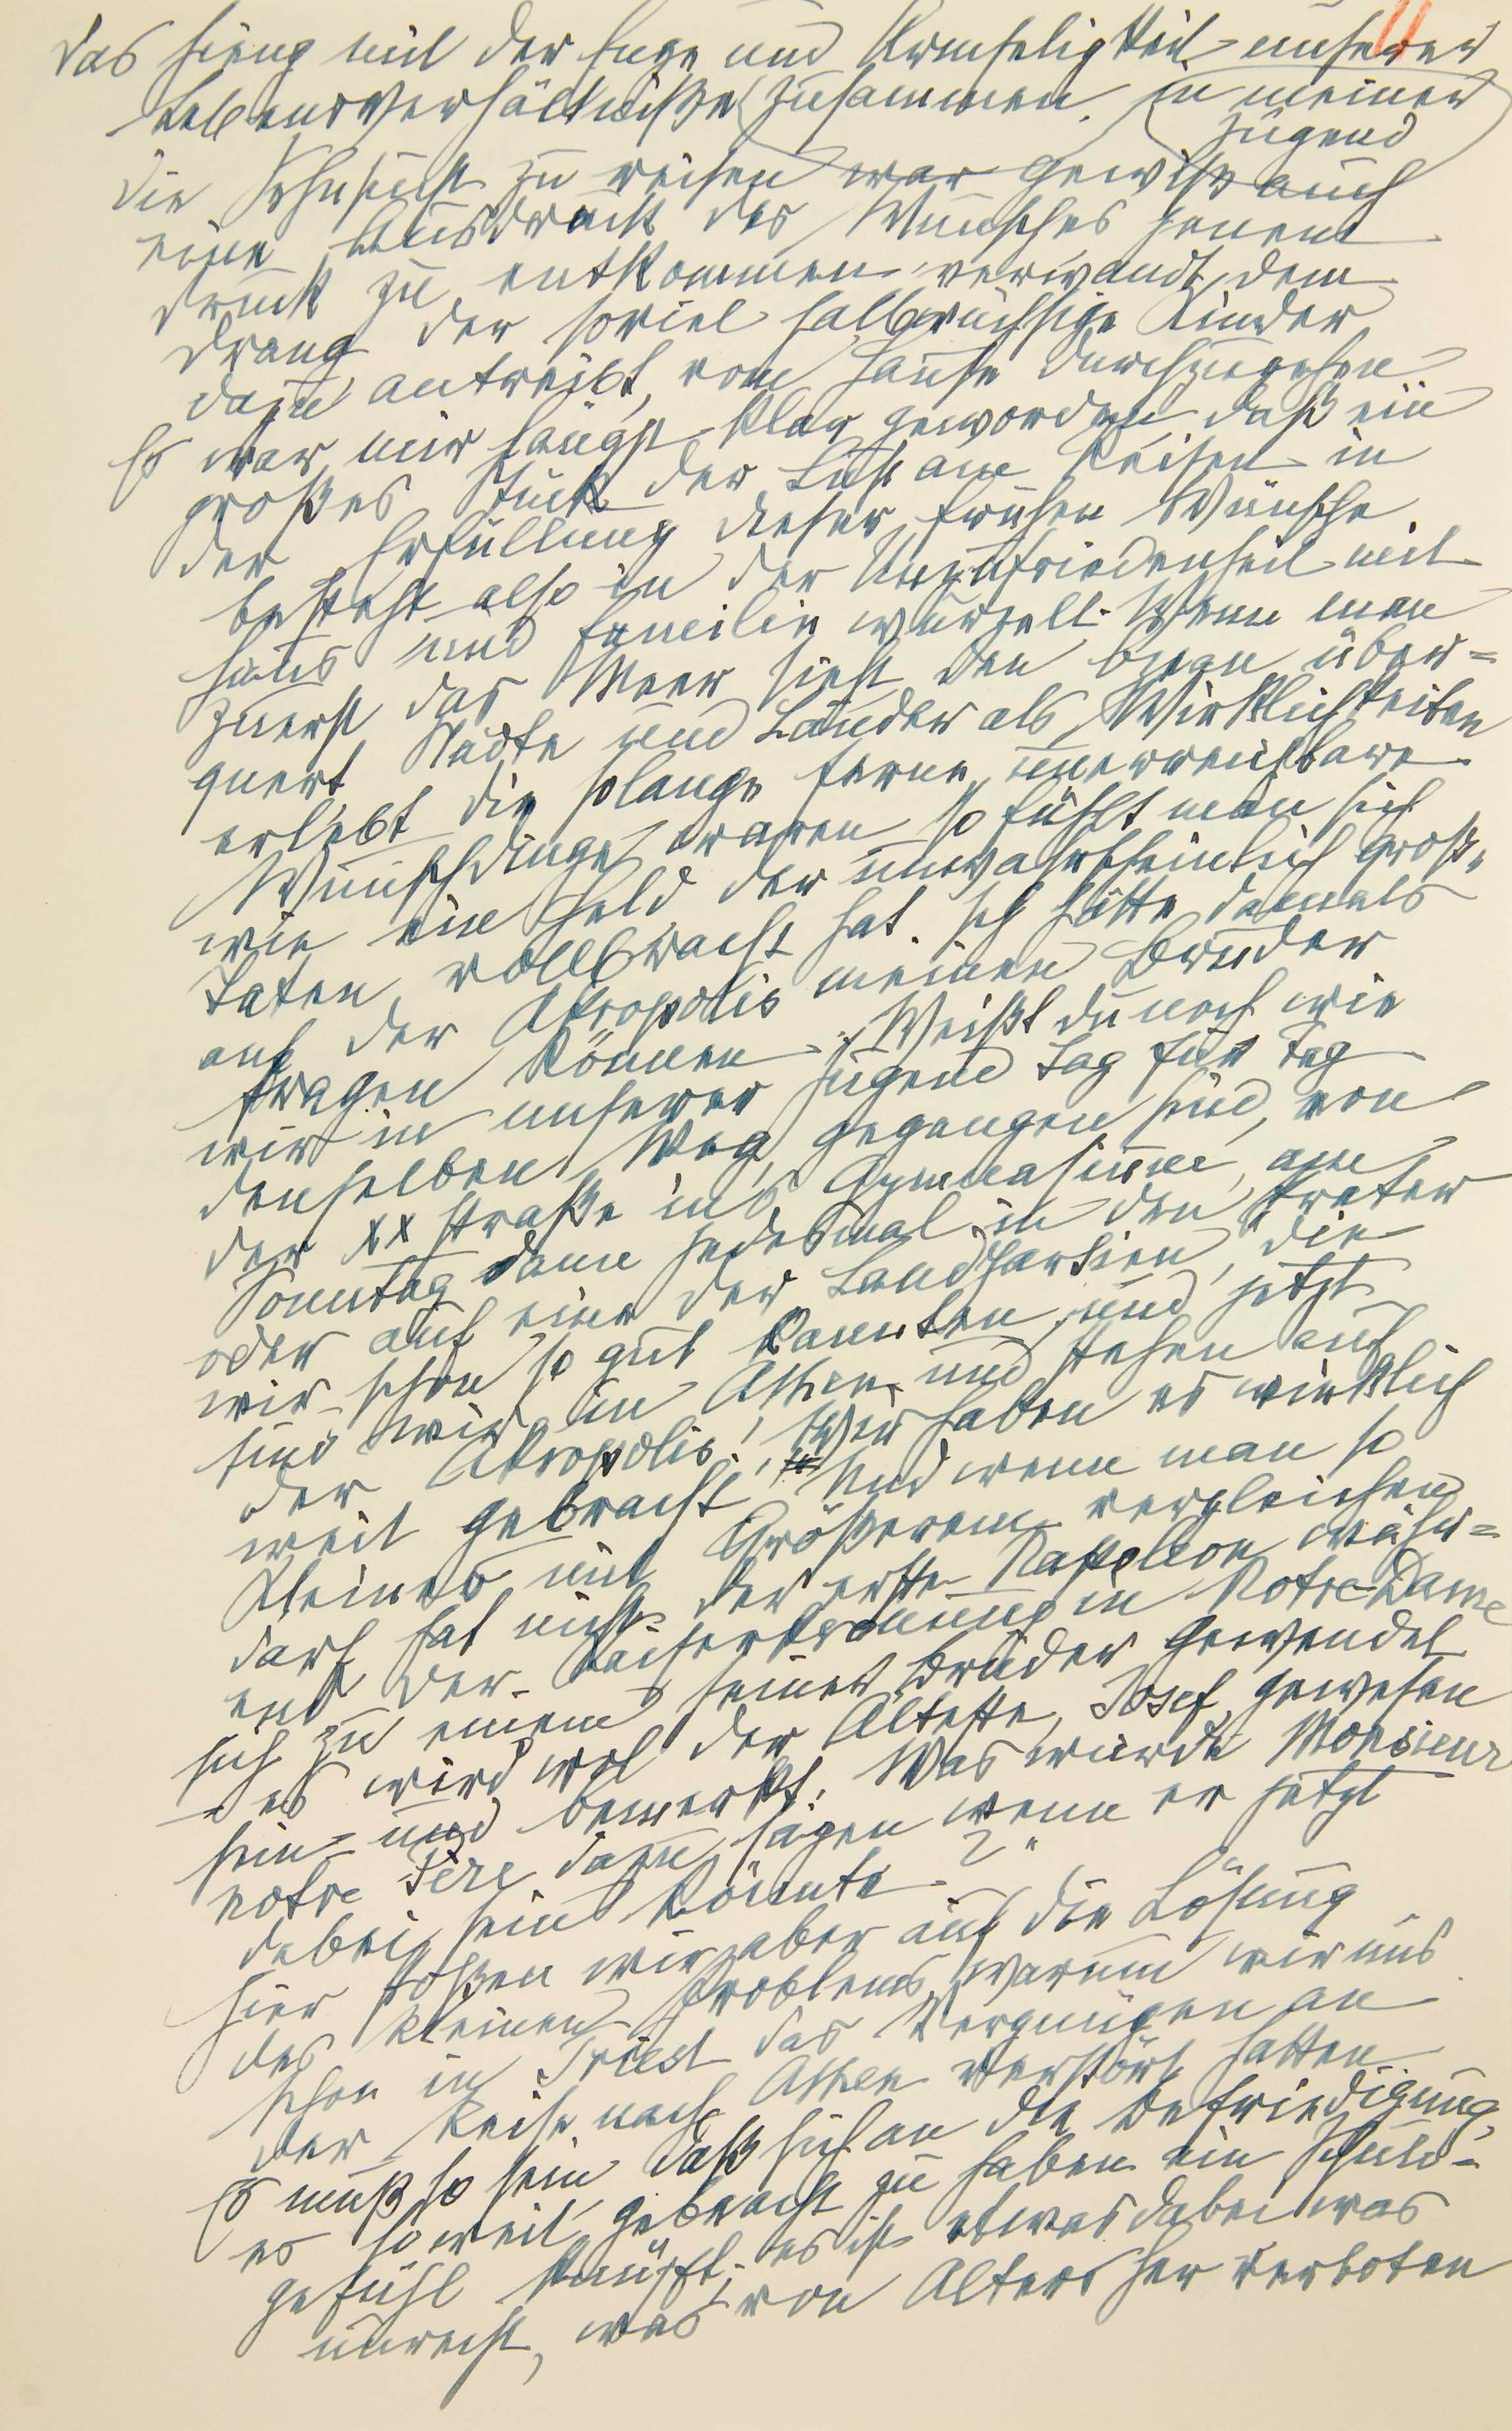 11
das hieng mit der Enge und Armseligkeit unserer
Lebensverhältniße zusammen. in meiner
Jugend
Die Sehnsucht zu reisen war gewiß auch
ein Ausdruck des Wunsches jenem
Druck zu entkommen verwandt dem
Drang der soviel halbwüchsige Kinder
dazu antreibt, vom Hause durchzugehen
Es war mir längst klar geworden daß ein
großes Stück der Lust am Reisen in
der Erfüllung dieser frühen Wünsche
besteht also in der Unzufriedenheit mit
Haus und Familie wurzelt. Wenn man
zuerst das Meer sieht den Ozean über=
quert Städte und Länder als Wirklichkeiten
erlebt die solange ferne, unerreichbare
Wunschdinge waren so fühlt man sich
wie ein Held der unwahrscheinlich große
Taten vollbracht hat. Ich hätte damals
auf der Akropolis meinen Bruder
fragen können: „Weißt du noch wie
wir in unserer Jugend Tag für Tag
denselben Weg gegangen sind, von
der XX straße ins Gymnasium, am
Sonntag dann jedesmal in den Prater
oder auf eine der Landpartien, die
wir schon so gut kannten, und jetzt
sind wir in Athen und stehen auf
der Akropolis! Wir haben es wirklich
weit gebracht!“ Und wenn man so
Kleines mit Größerem vergleichen
darf hat nicht der erste Napoleon währ=
end der Kaiserkrönung in Notre-Dame
sich zu einem seiner Brüder gewendet
– es wird wol der Älteste, Josef, gewesen
sein – und bemerkt: Was würde Monsieur
notre Père dazu sagen wenn er jetzt
dabei sein könnte?“
Hier stoßen wir aber auf die Lösung
des kleinen Problems, warum wir uns
schon in Triest das Vergnügen an
der Reise nach Athen verstört hatten
Es muß so sein daß sich an die Befriedigung,
es so weit gebracht zu haben ein Schuld-
gefühl knüpft; es ist etwas dabei was
unrecht, was von Alters her verboten